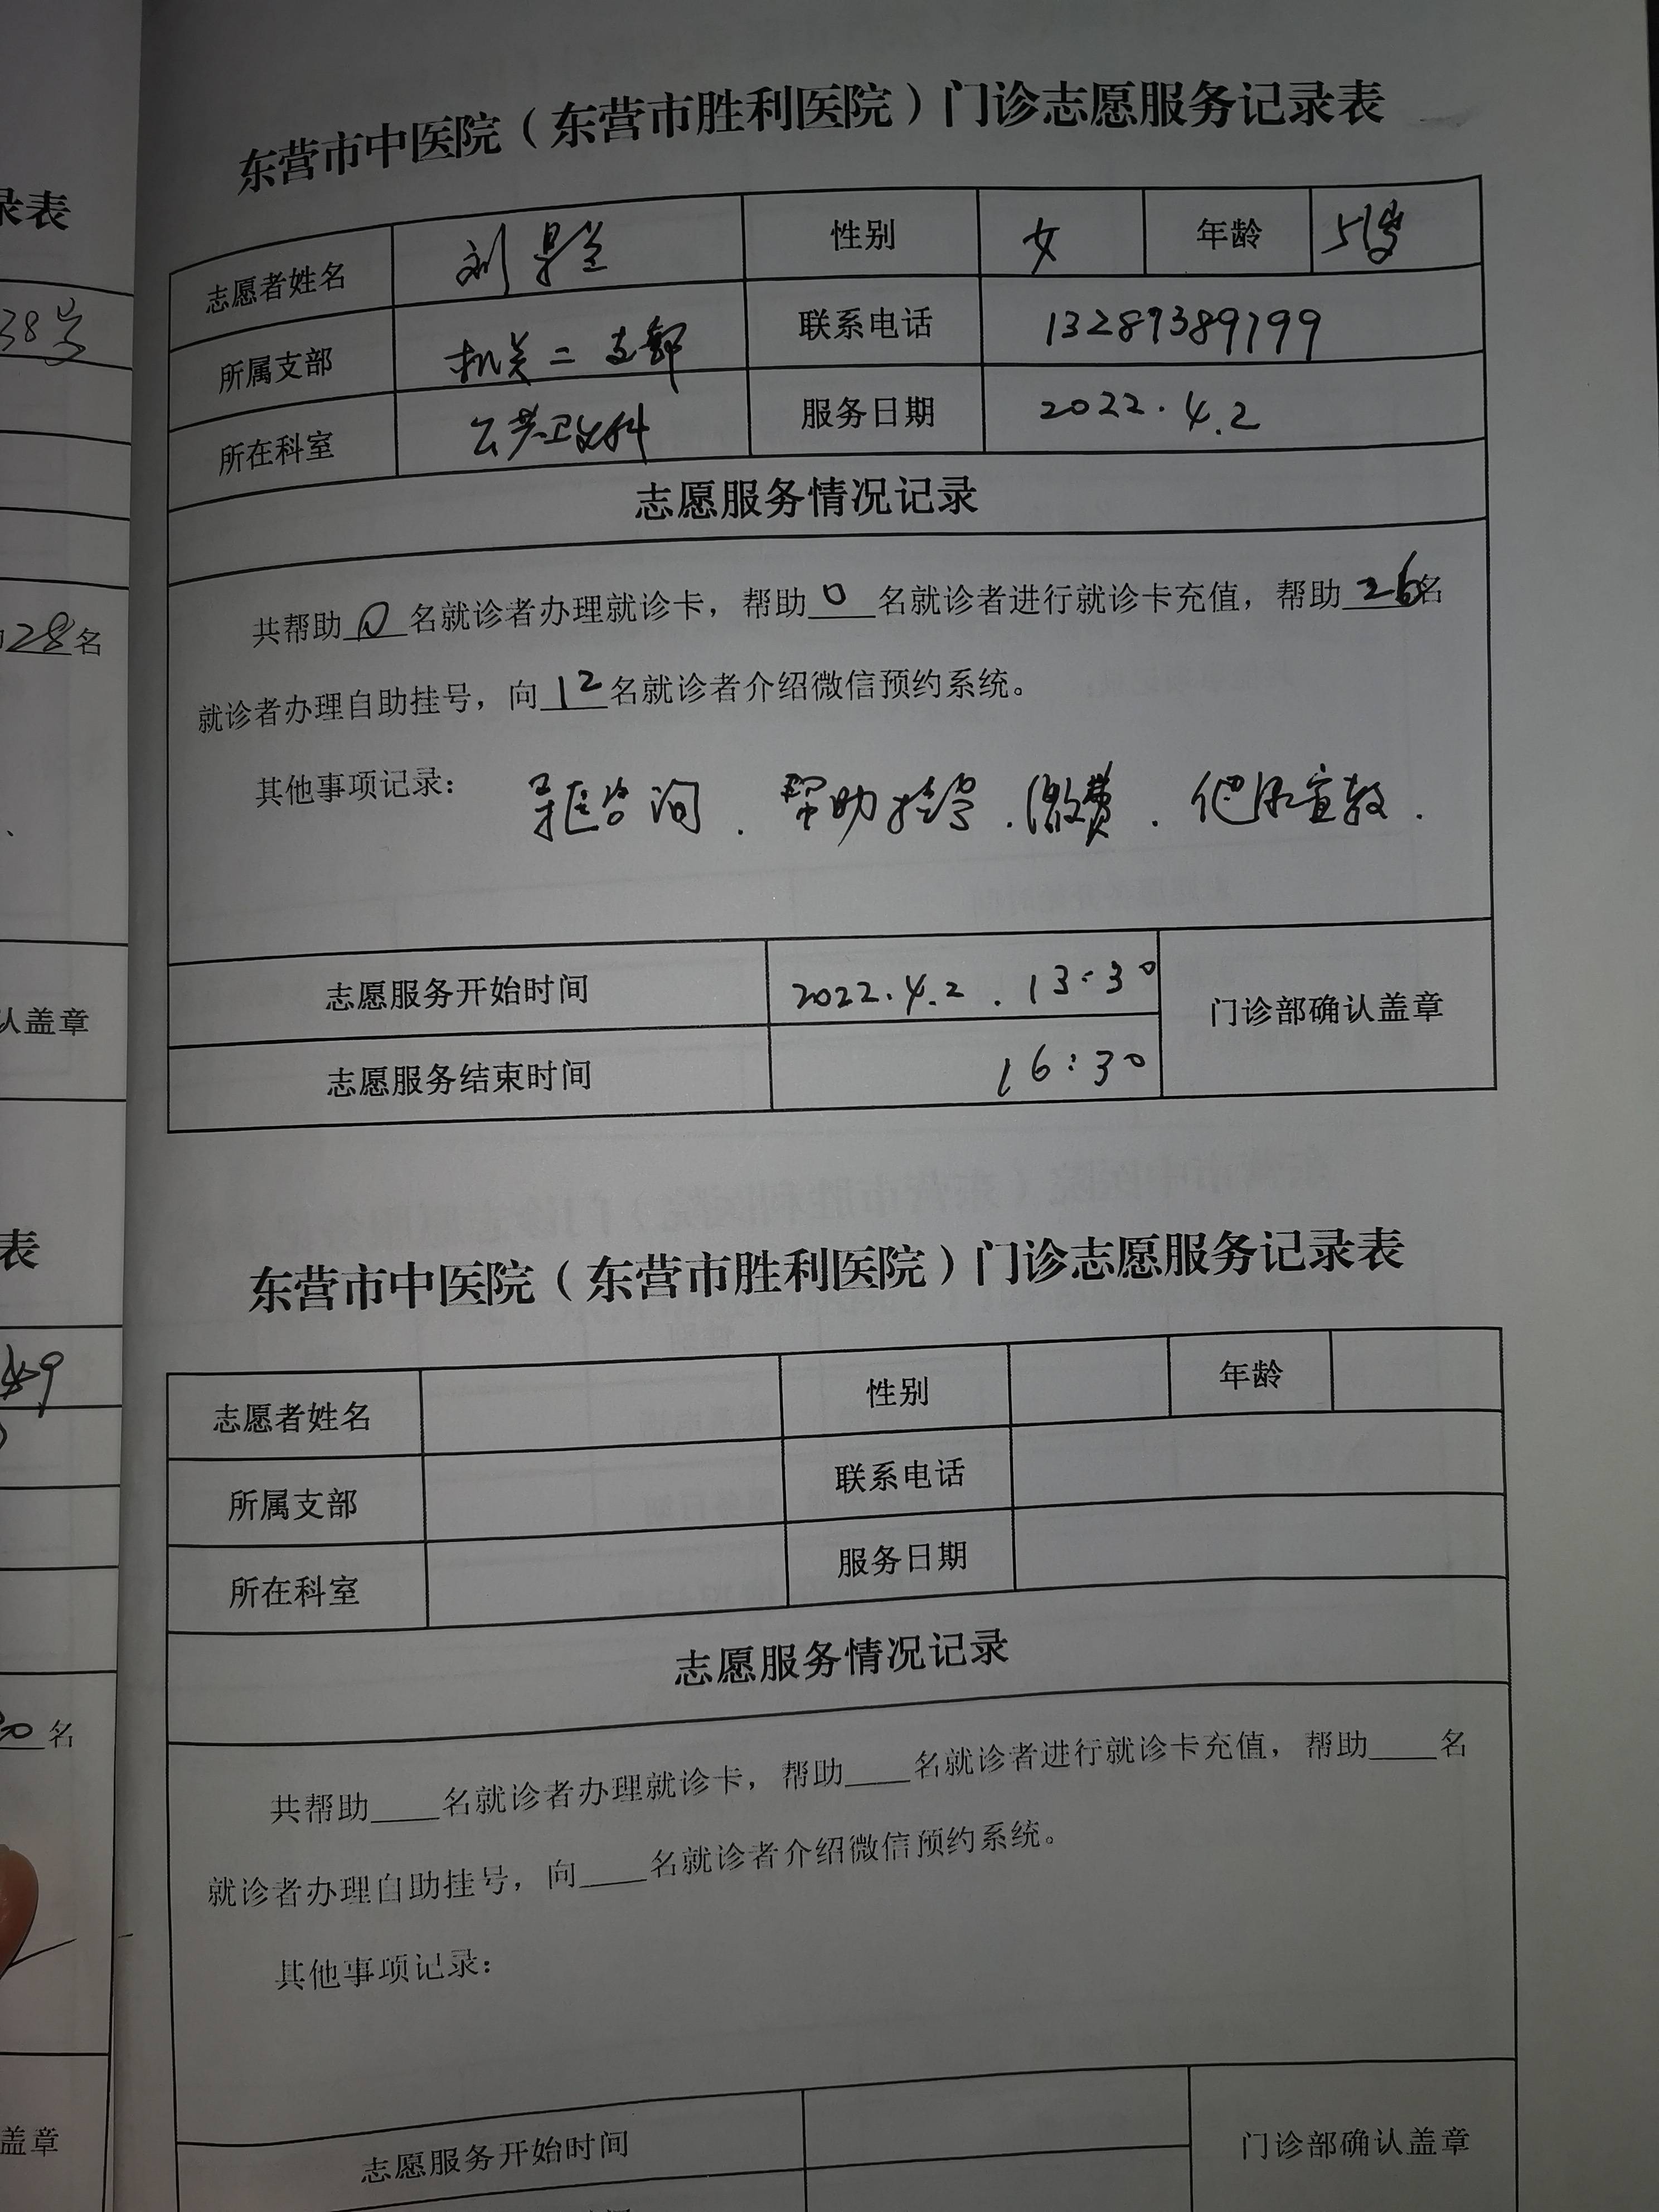 录表
38号
28名
认盖章
表
名
盖章
东营市中医院（东营市胜利医院）门诊志愿服务记录表
志愿者姓名 刘 性别 女 年龄 51岁
所属支部 机关二支部 联系电话 13289389799
所在科室 公共卫生科 服务日期 2022.4.2
志愿服务情况记录
共帮助0名就诊者办理就诊卡，帮助0名就诊者进行就诊卡充值，帮助26名
就诊者办理自助挂号，向12名就诊者介绍微信预约系统。
其他事项记录： 导医咨询．帮助挂号．缴费．健康宣教．
志愿服务开始时间 2022.4.2．13:30 门诊部确认盖章
志愿服务结束时间 16:30
东营市中医院（东营市胜利医院）门诊志愿服务记录表
志愿者姓名 性别 年龄
所属支部 联系电话
所在科室 服务日期
志愿服务情况记录
共帮助____名就诊者办理就诊卡，帮助____名就诊者进行就诊卡充值，帮助____名
就诊者办理自助挂号，向____名就诊者介绍微信预约系统。
其他事项记录：
志愿服务开始时间 门诊部确认盖章